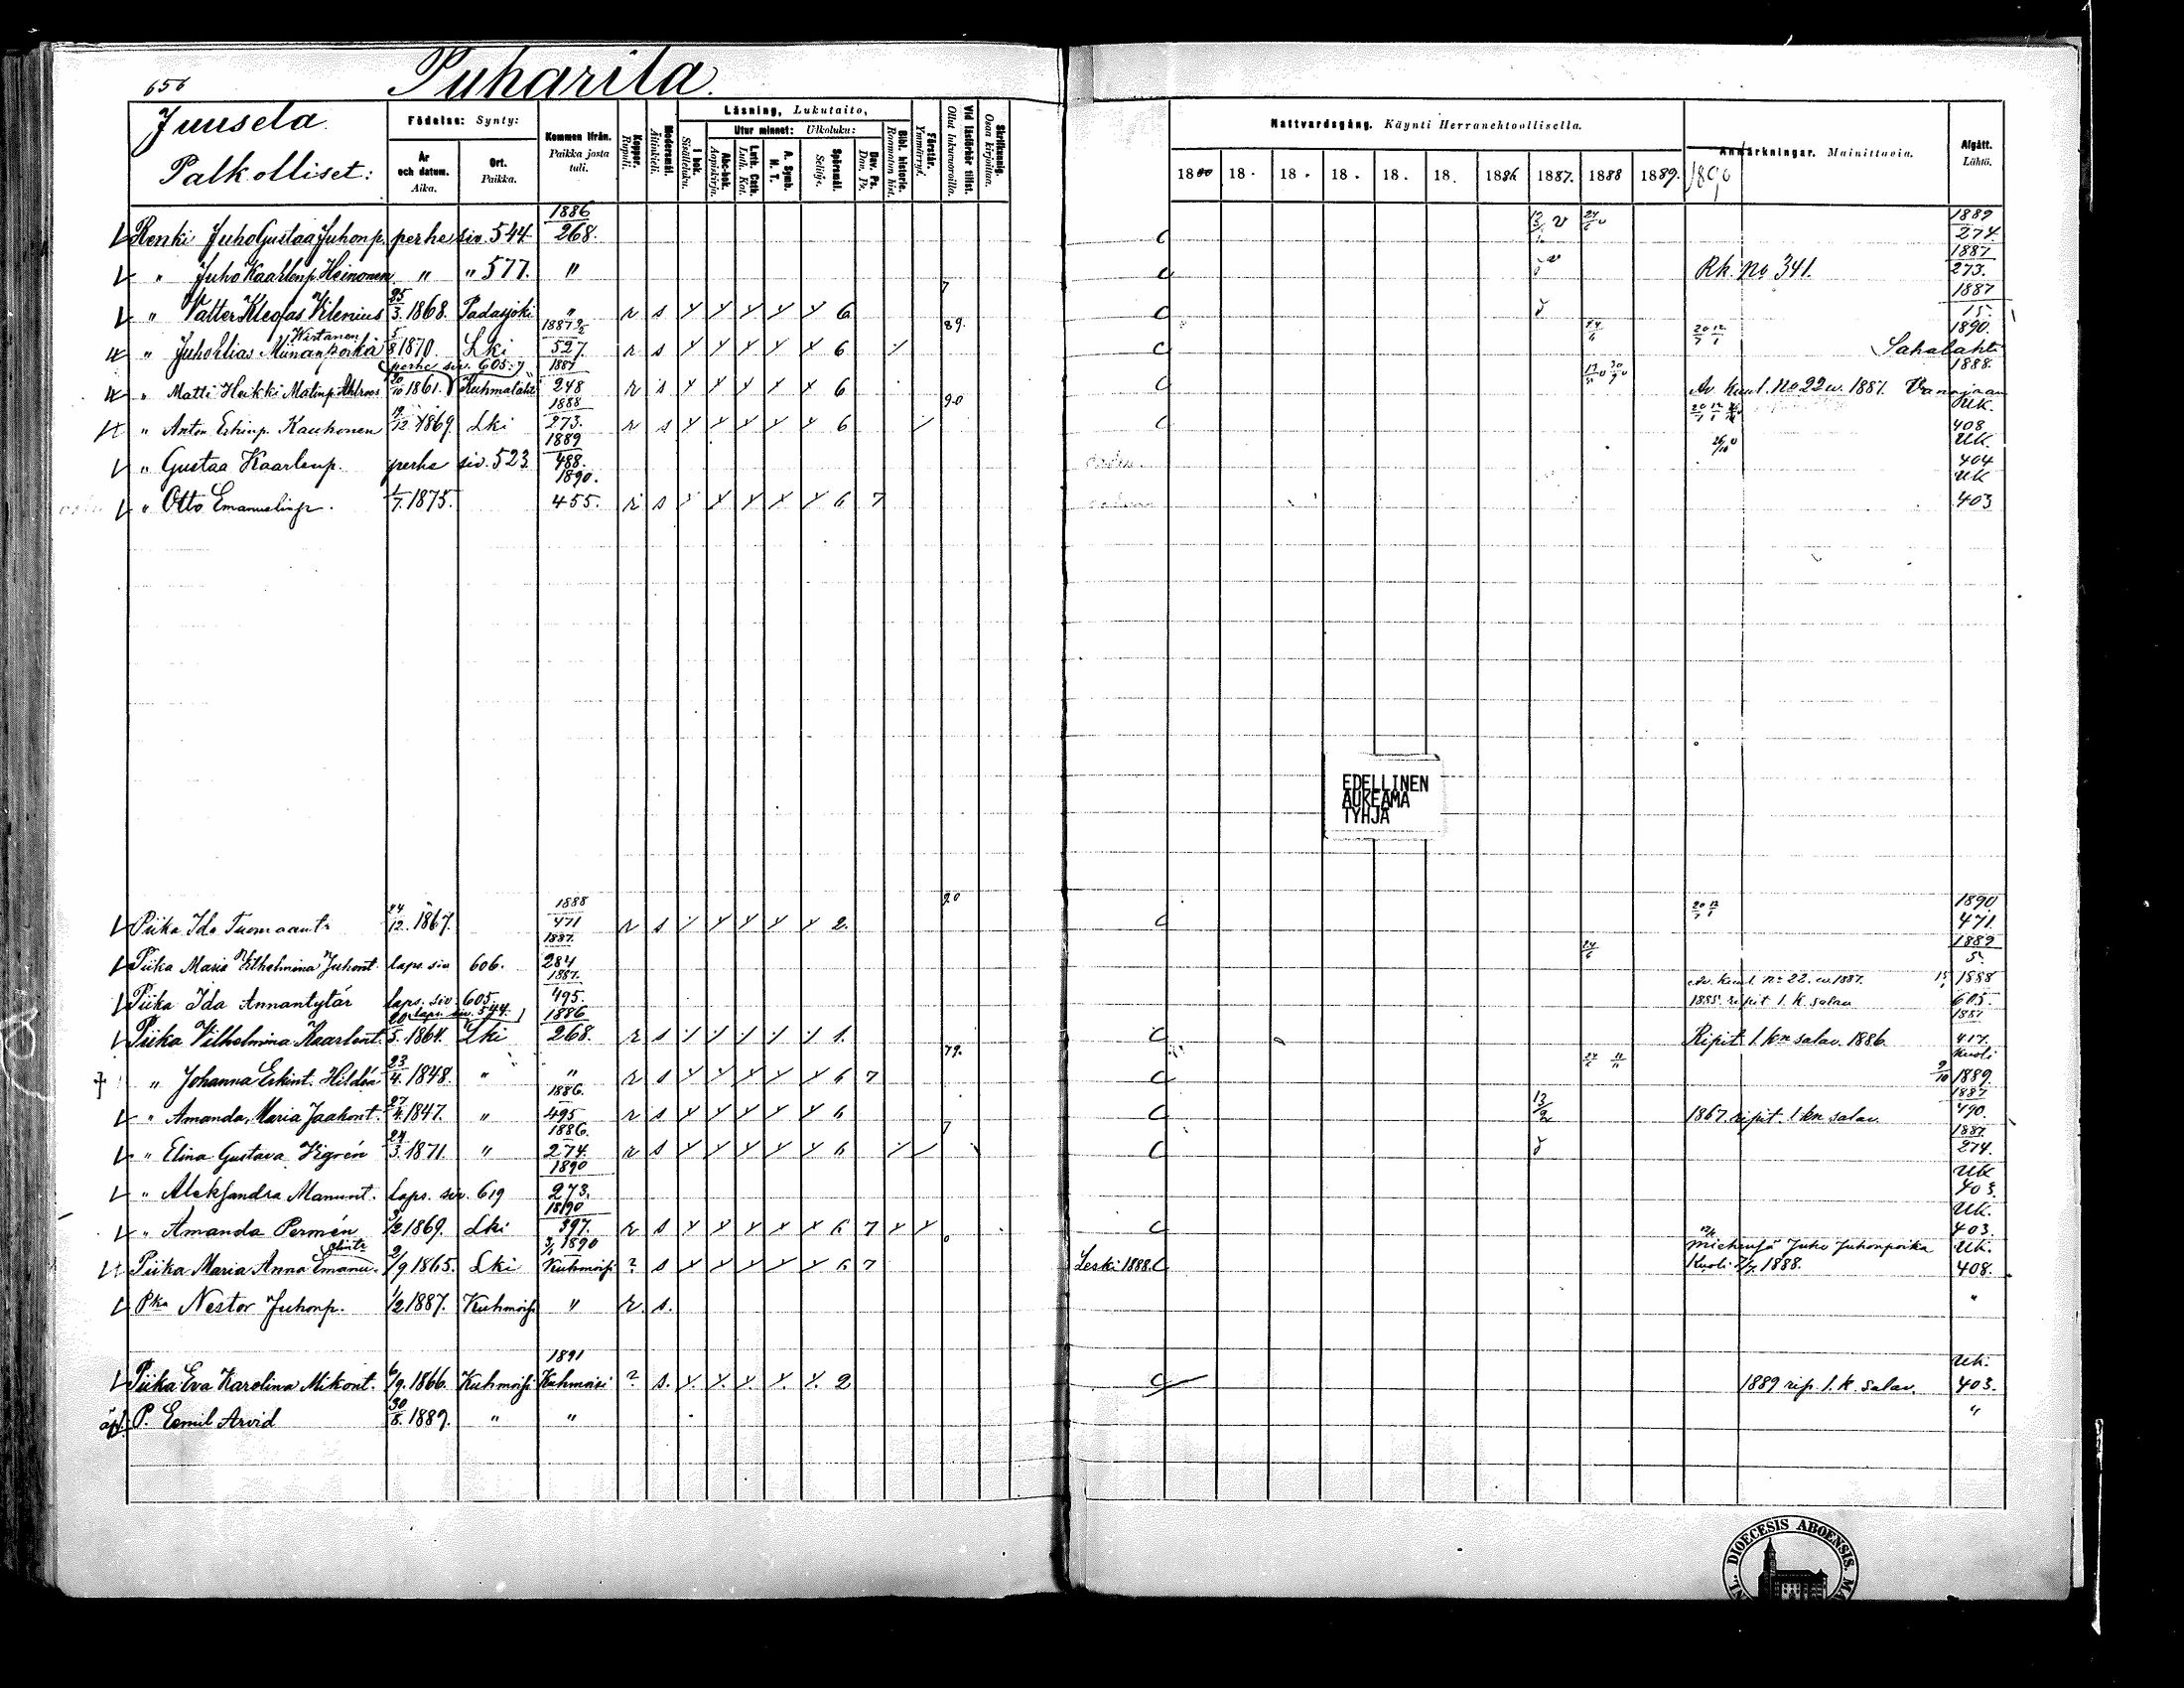 656 Puharila.
Juusela
Palkolliset:
Födelse: Synty:
År och datum. Aika.
Ort. Paikka.
Kommen ifrån. Paikka josta tuli.
Koppor. Rupuli.
Modersmål. Äitinkieli.
Läsning, Lukutaito,
I bok. Sisälleluku.
Utur minnet: Ulkoluku:
Abc-bok. Aapiskirja.
Luth. Cath. Luth. Kat.
A. Symb. H. T.
Spörsmål. Selitys.
Dav. Ps. Dav. Ps.
Bibl. historie. Raamatun hist.
Förstår. Ymmärrys.
Vid läsförhör tillst. Ollut lukuvuoroilla.
Skrifkunnig. Osaa kirjoittaa.
Nattvardsgång. Käynti Herranehtoollisella.
1880 18 18 18 18 18 1886 1887. 1888 1889. 1890
Anmärkningar. Mainittavia.
Afgått. Lähtö.
Renki Juho Gustaa Juhonp. perhe siv. 544 1886 268. C 1889 274.
" Juho Kaarlenp. Heinonen " " 577. " C Rh. no 341. 1887 273.
" Valter Kleofas Vilenius 25/3 1868. Padasjoki " r s 6 7 C 1887 15.
" Juho Elias Miinanpoika Wirtanen 5/8 1870. Lki 1887 527. r s 6 89. C 24/6 20/7 12/1 1890. Sahalahti
perhe siv. 605:
" Matti Heikki Matinp. 20/10 1861. Kuhmalahti 1887 248 r s 6 C Av. kuul. no 22 v. 1887. 1888.
" Anton Erkinp. Kauhonen 19/12 1869. Lki 1888 273. r s 6 90 C Uk. 408
" Gustaa Kaarlenp. perhe siv. 523 1889 488. Uk. 404
" Otto Emanuelinp. 1/7. 1875. 1890. 455. r s 6 7 Uk 403
EDELLINEN
AUKEAMA
TYHJÄ
Piika Ida Tuomaant. 24/12. 1867. 1888 471 r s 2. 90 C 20/7 12/1 1890 471.
Piika Maria Vilhelmina Juhont. laps. siv 606. 1887. 284 24/6 1889 5.
Piika Ida Annantytär laps. siv 605 1887. 495. Av. kuul. no 22. v. 1887. 1888. ripit. l. k. salav. 1888 605.
laps. siv. 544.
Piika Vilhelmina Kaarlent. 20/5. 1864. Lki 1886 268. r s 1. C Ripit. l. kn salav. 1886. 1887 417.
" Johanna Erkint. Hildén 23/4. 1848. " " r s 6 7 79. C Kuoli 9/10 1889.
" Amanda Maria Jaakont. 27/4. 1847. " 1886. 495 r s 6 C 13/2 1867. ripit. l. kn salav. 1887 490.
" Elina Gustava Vigrén 24/3. 1871. " 1886. 274. r s 6 7 C 1887 274.
" Aleksandra Manunt. Laps. siv. 619 1890 273. Uk 403.
" Amanda Permén 3/2 1869. Lki 1890 397. r s 6 7 C Uk. 403.
Piika Maria Anna Emanuelint. 2/9 1865. Lki 3/1 1890 Kuhmoisi ? s 6 7 0 Leski 1888. C Miehensä Juho Juhonpoika Kuoli 2/7. 1888. Uk. 408.
Pka Nestor Juhonp. 1/2 1887. Kuhmoisi " r. s. "
Piika Eva Karolina Mikont. 6/9. 1866. Kuhmoisi 1891 Kuhmoisi ? s. 2 C 1889 rip. l. k. salav. Uk. 403.
äp. P. Eemil Arvid 30/8. 1889. " " "
DIOECESIS ABOENSIS.